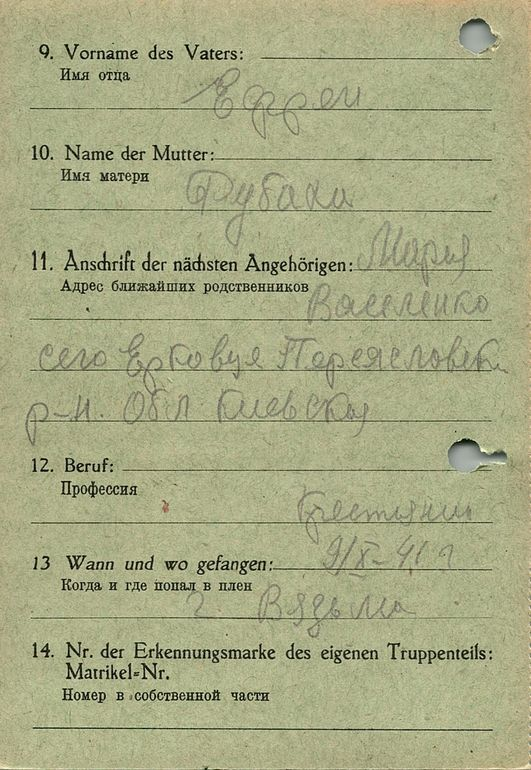 9. Vorname des Vaters:
Имя отца
Ефрем
10. Name der Mutter:
Имя матери
11. Anschrift der nächsten Angehörigen: Мария
Адрес ближайших родственников
Василенко
село Ерковце Переясловск
р-н. Обл Киевская
12. Beruf:
Профессия
Крестянин
13 Wann und wo gefangen: 9/X-41 г
Когда и где попал в плен
г. Вязьма
14. Nr. der Erkennungsmarke des eigenen Truppenteils:
Matrikel-Nr.
Номер в собственной части